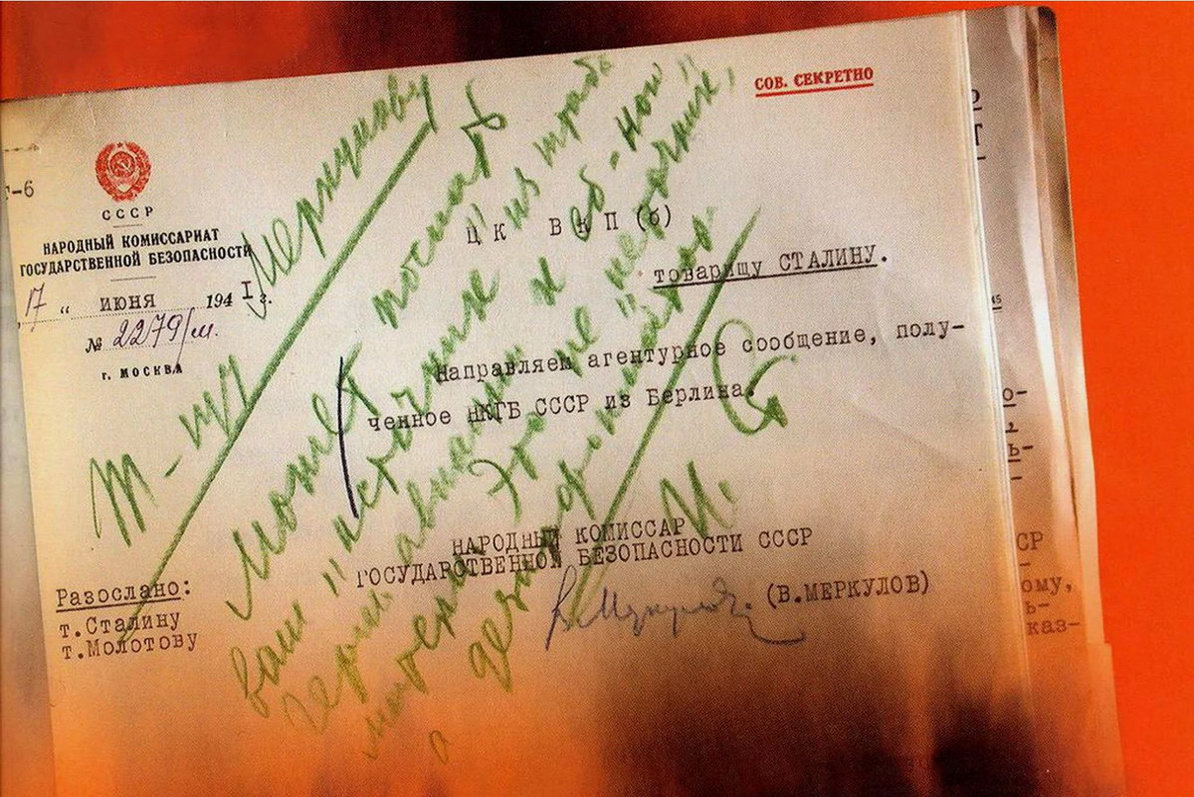 СОВ. СЕКРЕТНО
-6
СССР
НАРОДНЫЙ КОМИССАРИАТ
ГОСУДАРСТВЕННОЙ БЕЗОПАСНОСТИ
17 " ИЮНЯ 1941 г.
№ 2279/м.
г. МОСКВА
ЦК ВКП(б)
товарищу СТАЛИНУ.
Направляем агентурное сообщение, полу-
ченное НКГБ СССР из Берлина.
НАРОДНЫЙ КОМИССАР
ГОСУДАРСТВЕННОЙ БЕЗОПАСНОСТИ СССР
(В.МЕРКУЛОВ)
Разослано:
т.Сталину
т.Молотову
Т-щу Меркулову
Может послать
ваш "источник" из штаба
герм. авиации к еб-ной
матери. Это не "источник",
а дезинформатор.
И. Ст
о-
ь-
СР
ому,
ь-
каз-